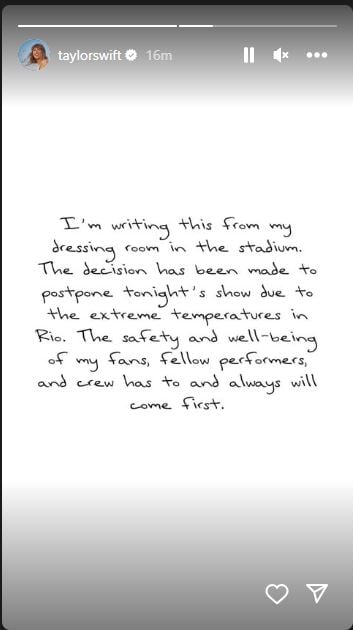 taylorswift 16m
I'm writing this from my
dressing room in the stadium.
The decision has been made to
postpone tonight's show due to
the extreme temperatures in
Rio. The safety and well-being
of my fans, fellow performers,
and crew has to and always will
come first.